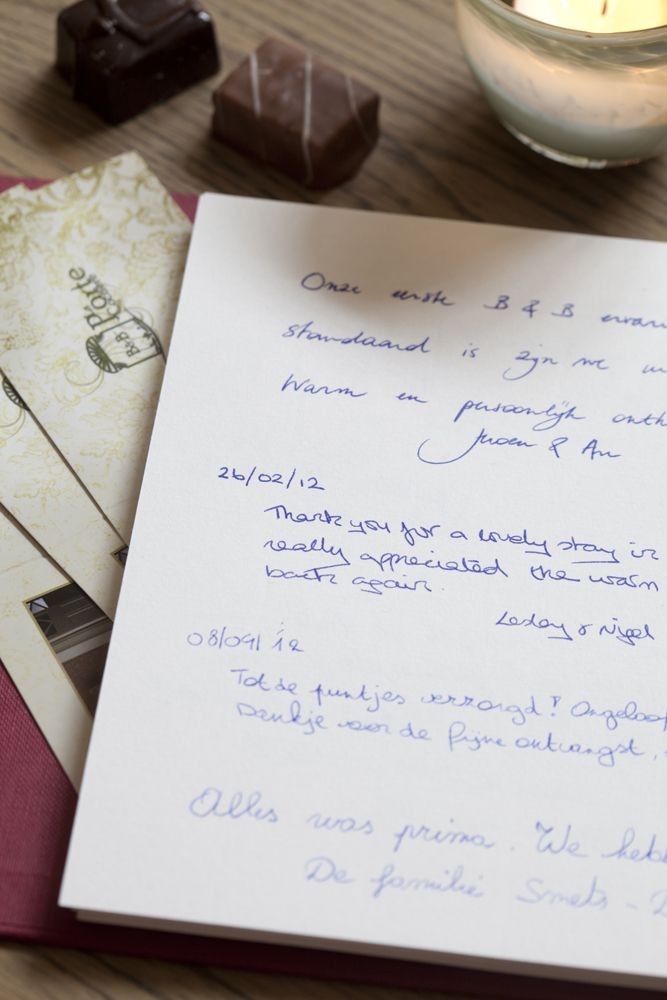 B&B
D'Carte
Onze eerste B & B ervar
standaard is zijn we
Warm en persoonlijk onth
Jeroen & An
26/02/12
Thank you for a lovely stay in
really appreciated the warm
back again.
Lesley & Nigel
08/09/12
Tot de puntjes verzorgd! Ongeloof
Dankje voor de fijne ontvangst,
Alles was prima. We hebb
De familie Smets - D